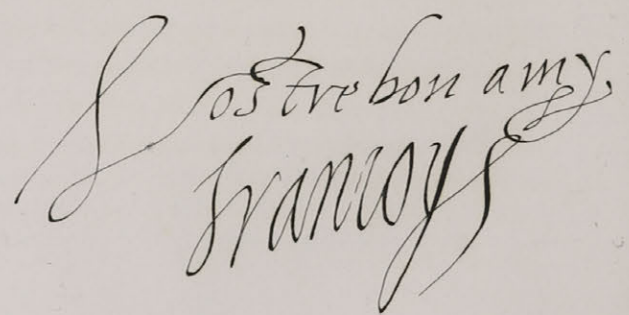 Vostre bon amy,
Francoys